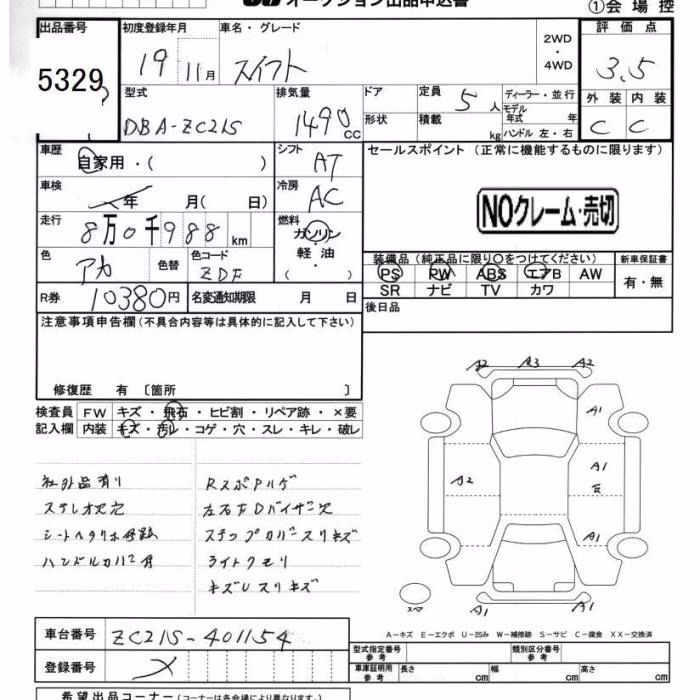 オークション出品申込書
①会場控
出品番号
5329
初度登録年月
19 11月
車名・グレード
スイフト
2WD
・
4WD
評価点
3.5
外装 内装
C C
型式
DBA-ZC21S
排気量
1490cc
ドア
形状
定員 5人
積載 kg
ディーラー・並行
モデル年式 年
ハンドル 左・右
車歴
自家用・( )
シフト
AT
セールスポイント (正常に機能するものに限ります)
NOクレーム・売切
車検
年 月( 日)
冷房
AC
走行
8万0千988km
燃料
ガソリン
軽油
( ・ )
色
アカ
色替
色コード
ZDF
装備品 (純正品に限り○をつけてください)
PS PW ABS エアB AW
SR ナビ TV カワ
新車保証書
有・無
R券 10380円
名変通知期限 月 日
後日品
注意事項申告欄 (不具合内容等は具体的に記入して下さい)
修復歴 有 〔箇所 〕
検査員 FW キズ・飛石・ヒビ割・リペア跡・×要
記入欄 内装 キズ・汚レ・コゲ・穴・スレ・キレ・破レ
社外品有り
ステレオ欠穴
ハンドルカバー有
RスポPハゲ
左右FDバイザー欠
ステップカバースリキズ
ライトクモリ
キズUスリキズ
A2 A3 A2
A1
A2
A1
E
A1
A1 A1
スペア
A-キズ E-エクボ U-凹み W-補修跡 S-サビ C-腐食 XX-交換済
車台番号 ZC21S-401154
登録番号
型式指定番号
参考
類別区分番号
参考
車庫証明用
参考
長さ cm 幅 cm 高さ cm
希望出品コーナー (コーナーは各会場により異なります。)